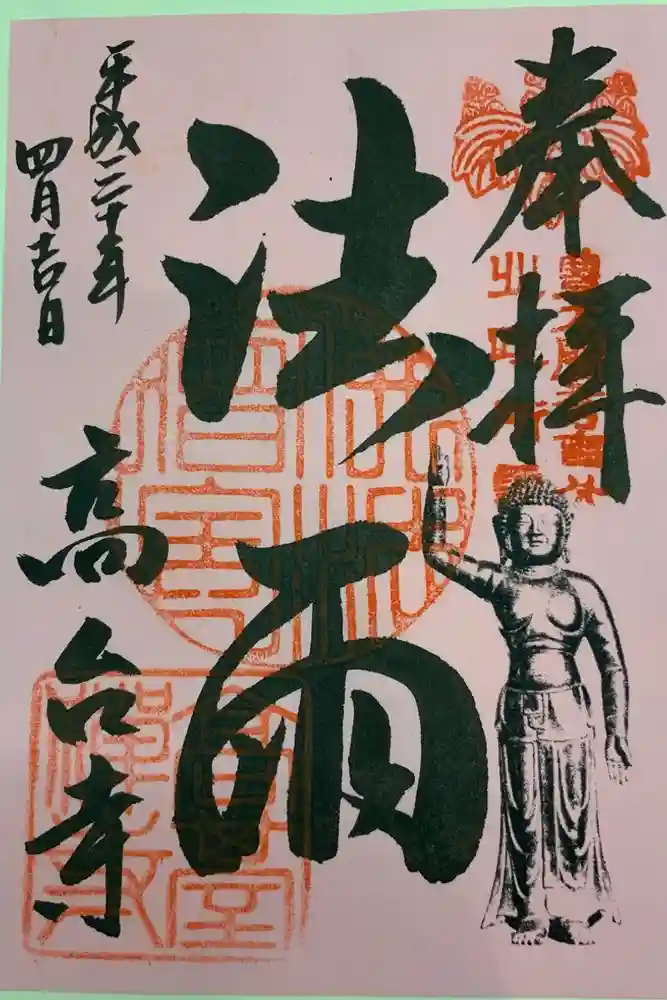 奉拝
法雨
平成三十年
四月吉日
高台寺